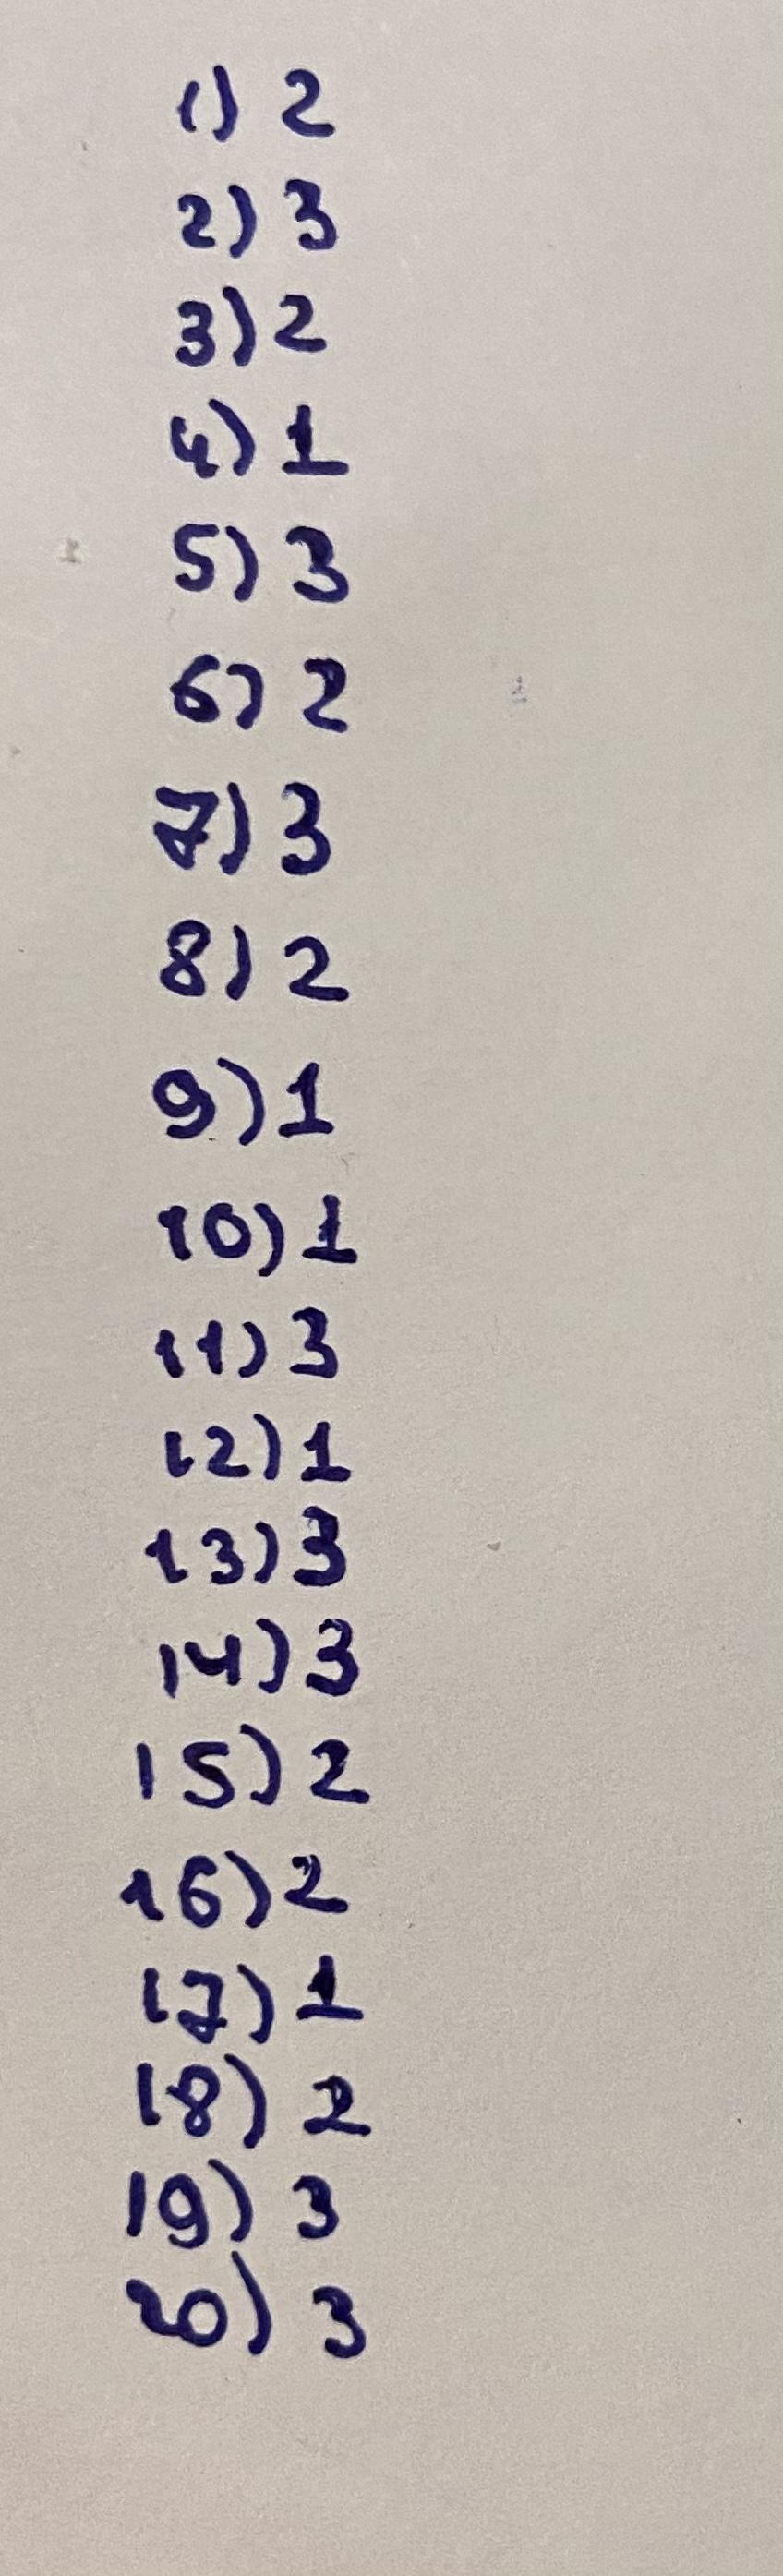 1) 2
2) 3
3) 2
4) 1
5) 3
6) 2
7) 3
8) 2
9) 1
10) 1
11) 3
12) 1
13) 3
14) 3
15) 2
16) 2
17) 1
18) 2
19) 3
20) 3